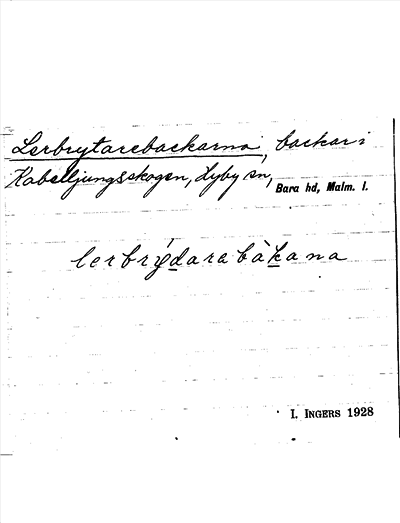 Lerbrytarebackarna, backar i
Kabelljungsskogen, Lyby sn, Bara hd, Malm. l.
lerbrýdarebàkana
I. INGERS 1928